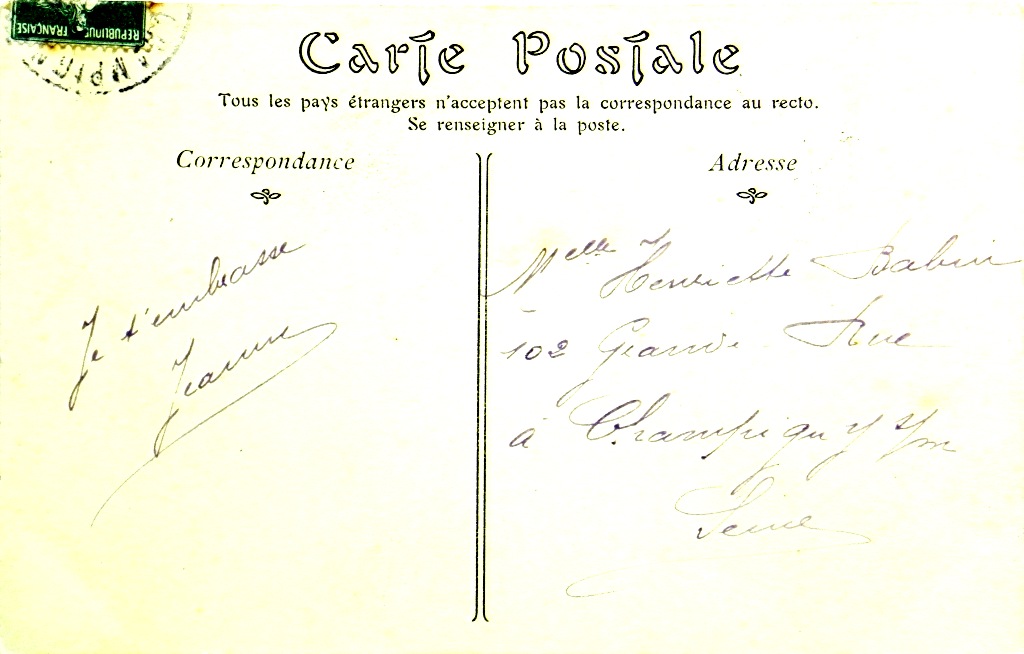 RÉPUBLIQUE FRANÇAISE
CHAMPIGN
Carte Postale
Tous les pays étrangers n'acceptent pas la correspondance au recto.
Se renseigner à la poste.
Correspondance
Je t'embrasse
Jeanne
Adresse
Melle Henriette Babin
102 Grande Rue
à Champigny s/m
Seine